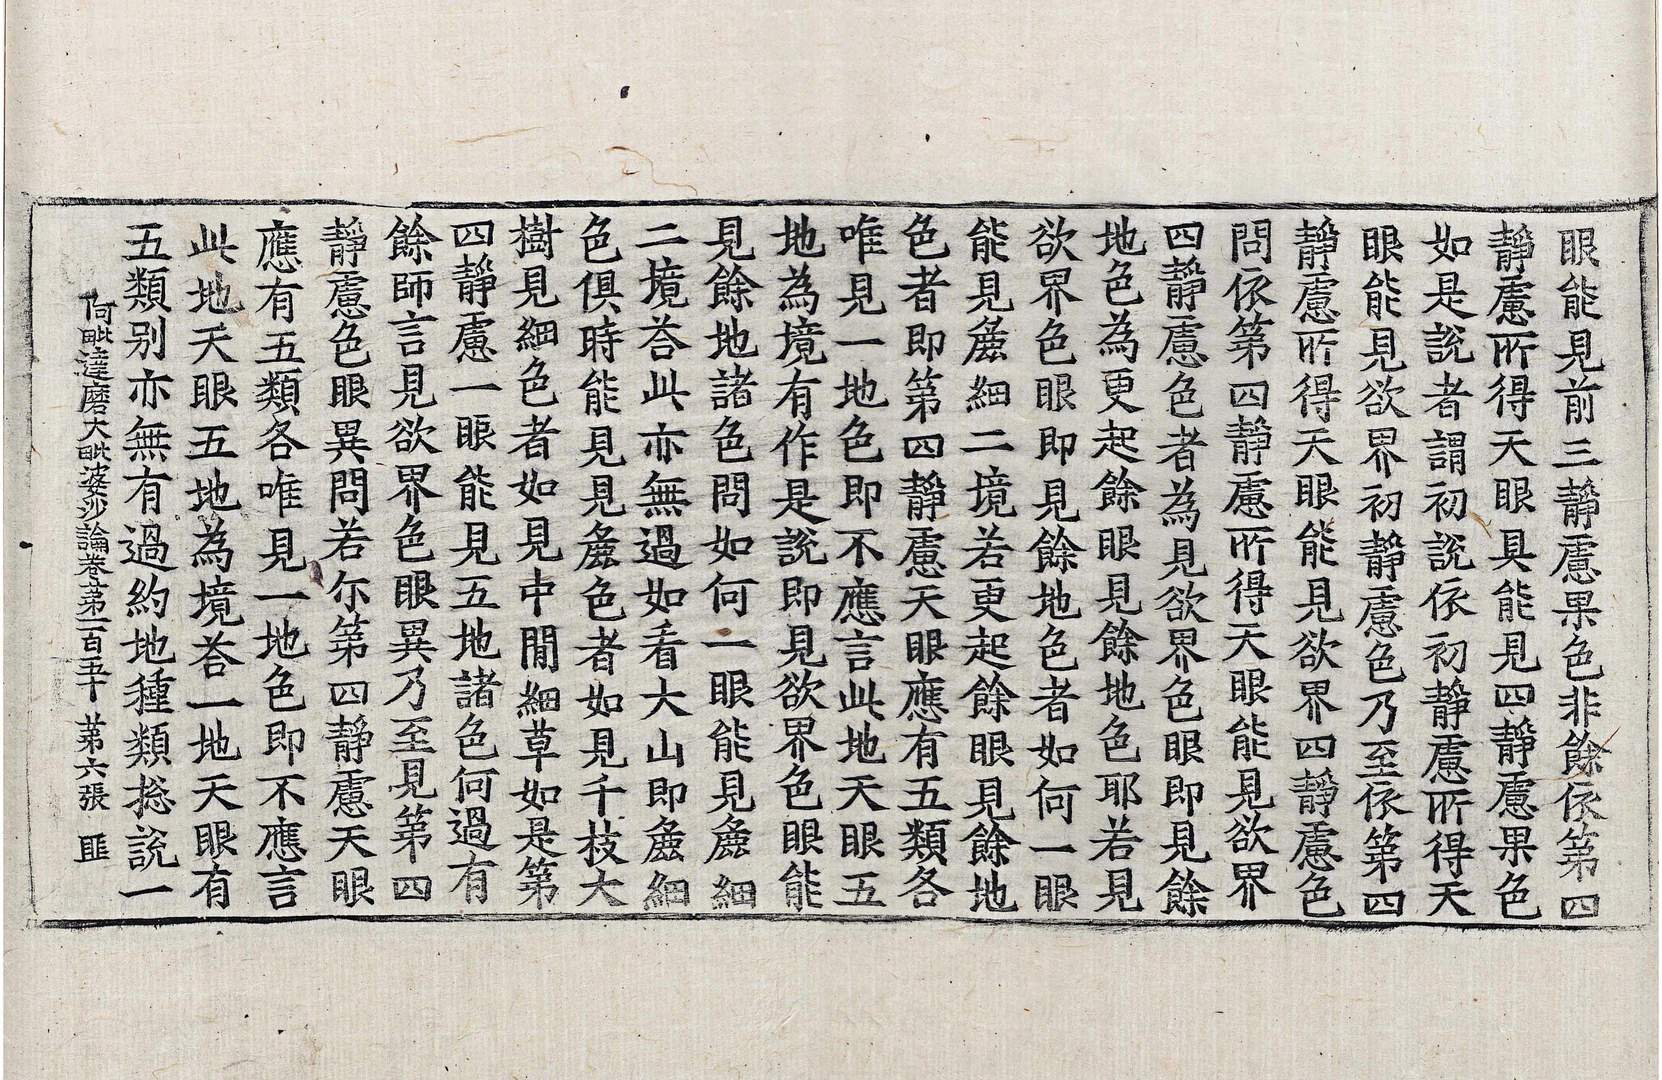 眼能見前三靜慮果色非餘依第四
靜慮所得天眼具能見四靜慮果色
如是說者謂初說依初靜慮所得天
眼能見欲界初靜慮色乃至依第四
靜慮所得天眼能見欲界四靜慮色
問依第四靜慮所得天眼能見欲界
四靜慮色者為見欲界色眼即見餘
地色為更起餘眼見餘地色耶若見
欲界色眼即見餘地色者如何一眼
能見麁細二境若更起餘眼見餘地
色者即第四靜慮天眼應有五類各
唯見一地色即不應言此地天眼五
地為境有作是說即見欲界色眼能
見餘地諸色問如何一眼能見麁細
二境荅此亦無過如看大山即麁細
色俱時能見見麁色者如見千枝大
樹見細色者如見中間細草如是第
四靜慮一眼能見五地諸色何過有
餘師言見欲界色眼異乃至見第四
靜慮色眼異問若尒第四靜慮天眼
應有五類各唯見一地色即不應言
此地天眼五地為境荅一地天眼有
五類別亦無有過約地種類捴說一
阿毗達磨大毗婆沙論卷第一百五十 第六張 匪